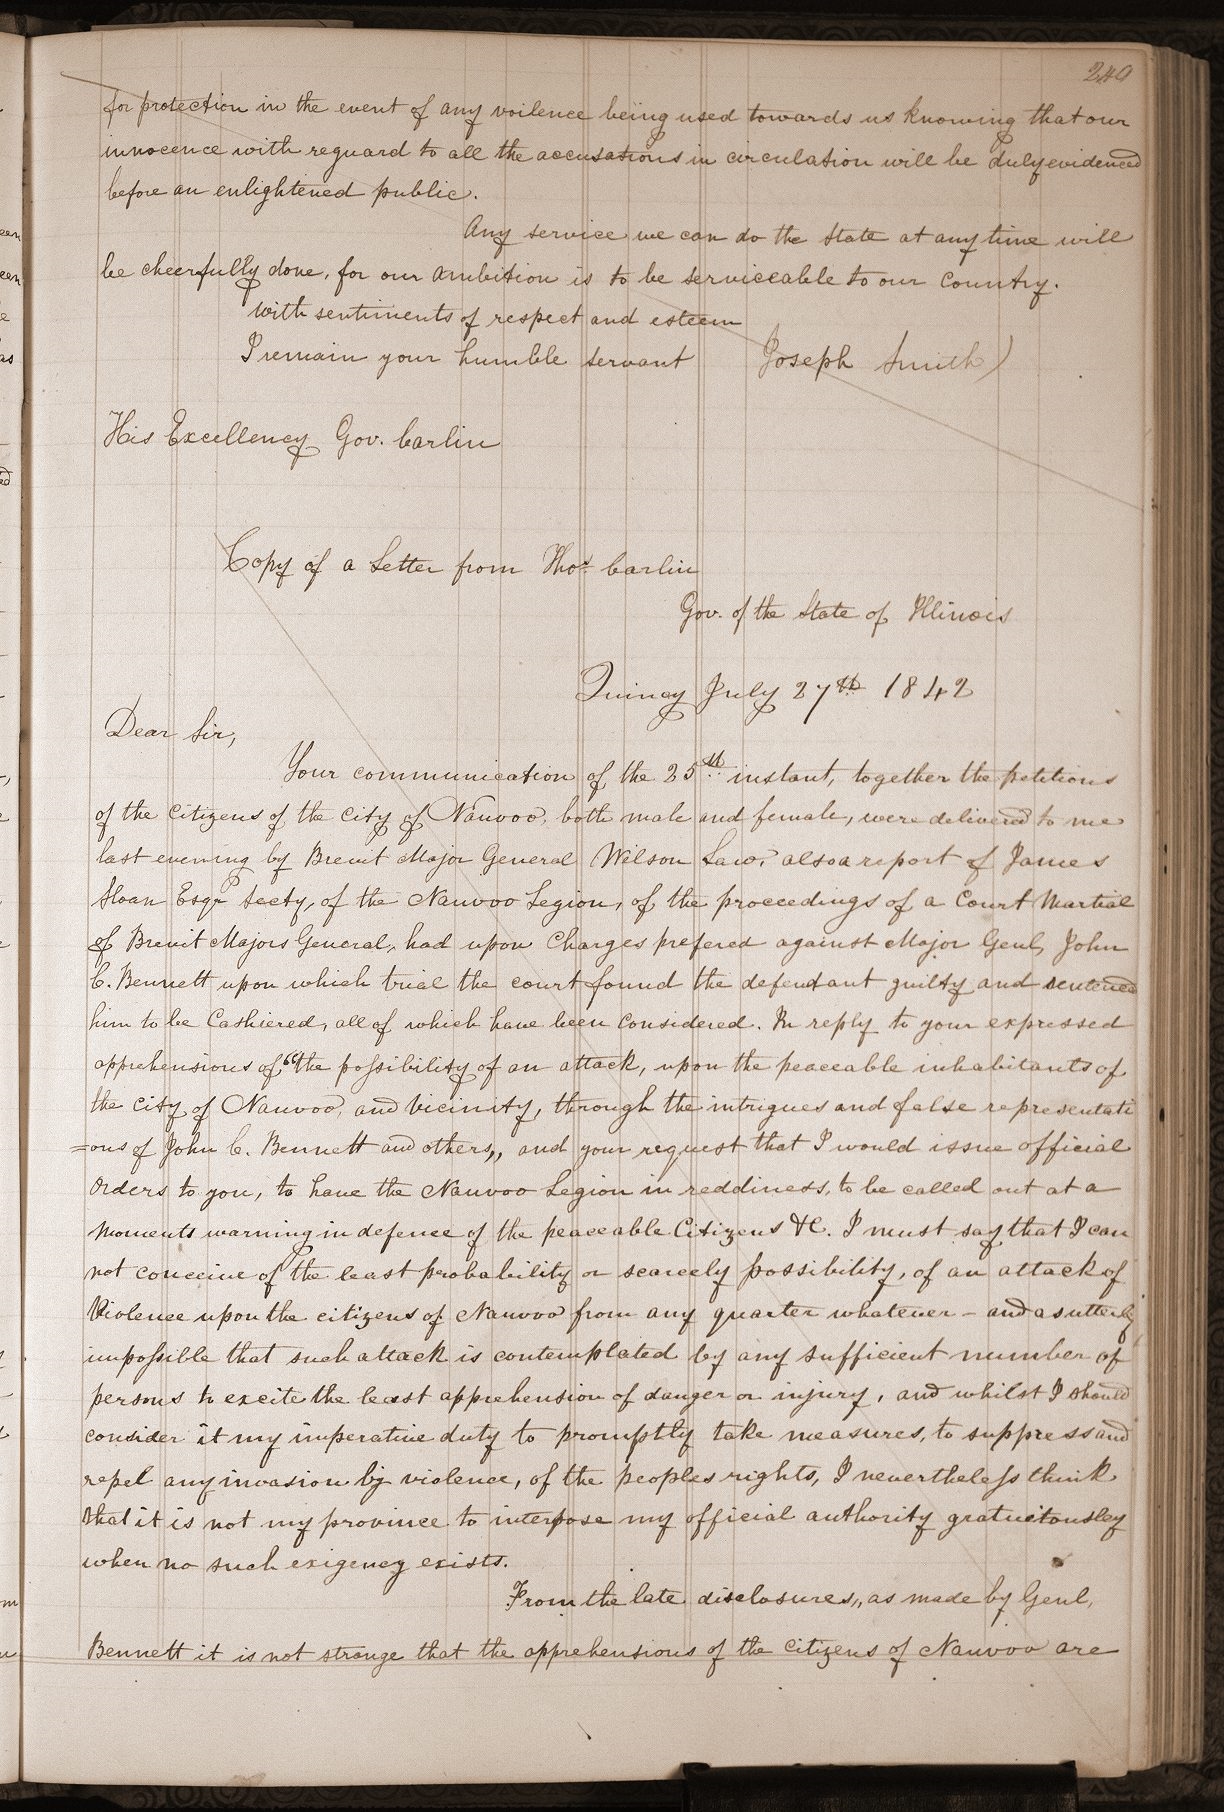 240
for protection in the event of any voilence being used towards us knowing that our
innocence with reguard to all the accusations in circulation will be duly evidenced
before an enlightened public.
Any service we can do the State at any time will
be cheerfully done, for our ambition is to be serviceable to our country.
with sentiments of respect and esteem
I remain your humble servant Joseph Smith)
His Excellency Gov. Carlin
Copy of a Letter from Thos. Carlin
Gov. of the State of Illinois
Quincy July 27th 1842
Dear Sir,
Your communication of the 25th instant, together the petitions
of the citizens of the city of Nauvoo, both male and female, were delivered to me
last evening by Brevit Major General Wilson Law. also a report of James
Sloan Esqr Secty, of the Nauvoo Legion, of the proceedings of a Court Martial
of Brevit Majors General, had upon Charges prefered against Major Genl, John
C. Bennett upon which trial the court found the defendant guilty and sentenced
him to be Cashiered, all of which have been considered. In reply to your expressed
apprehensions of "the possibility of an attack, upon the peaceable inhabitants of
the city of Nauvoo, and vicinity, through the intrigues and false representati
=ons of John C. Bennett and others,, and your request that I would issue official
orders to you, to have the Nauvoo Legion in reddiness, to be called out at a
moments warning in defence of the peaceable Citizens &C. I must say that I can
not conceive of the least probability or scarcely possibility, of an attack of
Violence upon the citizens of Nauvoo from any quarter whatever - and as utterly
impossible that such attack is contemplated by any sufficient number of
persons to excite the least apprehension of danger or injury, and whilst I should
consider it my imperative duty to promptly take measures, to suppress and
repel any invasion by violence, of the peoples rights, I nevertheless think
that it is not my province to interpose my official authority gratuitousley
when no such exigency exists.
From the late disclosures,, as made by Genl,
Bennett it is not strange that the apprehensions of the citizens of Nauvoo are